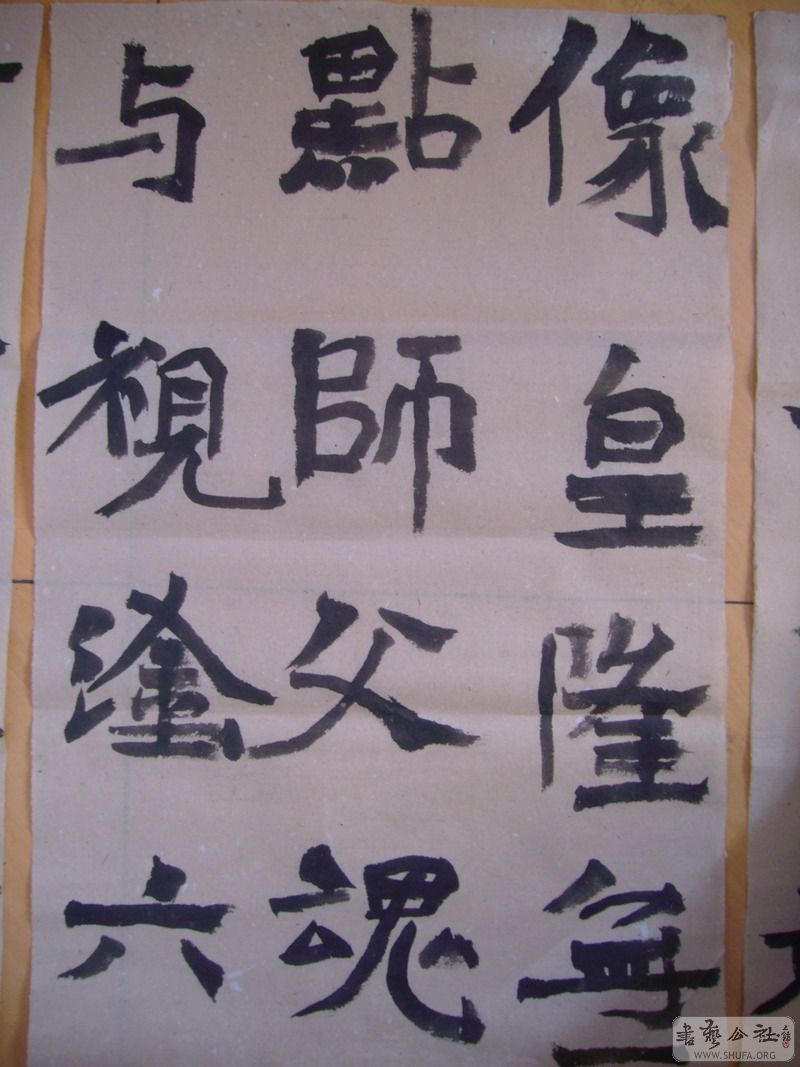 像皇隆無
點師父魂
与視塗六
書藝公社
WWW.SHUFA.ORG